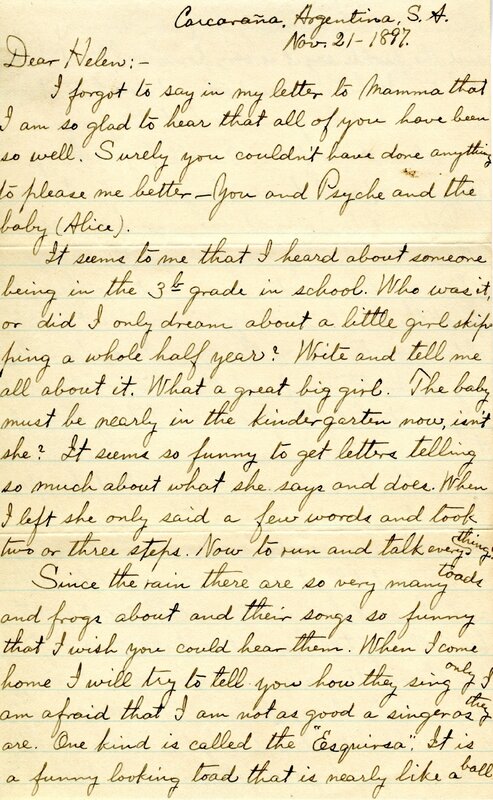 Carcaraña, Argentina, S. A.
Nov. 21 - 1897.
Dear Helen:-
I forgot to say in my letter to Mamma that
I am so glad to hear that all of you have been
so well. Surely you couldn't have done anything
to please me better - You and Psyche and the
baby (Alice).
It seems to me that I heard about someone
being in the 3 b grade in school. Who was it,
or did I only dream about a little girl skip
ping a whole half year? Write and tell me
all about it. What a great big girl. The baby
must be nearly in the kindergarten now, isn't
she? It seems so funny to get letters telling
so much about what she says and does. When
I left she only said a few words and took
two or three steps. Now to run and talk everything!
Since the rain there are so very many toads
and frogs about and their songs so funny
that I wish you could hear them. When I come
home I will try to tell you how they sing only I
am afraid that I am not as good a singer as they
are. One kind is called the "Esquirsa". It is
a funny looking toad that is nearly like a ball